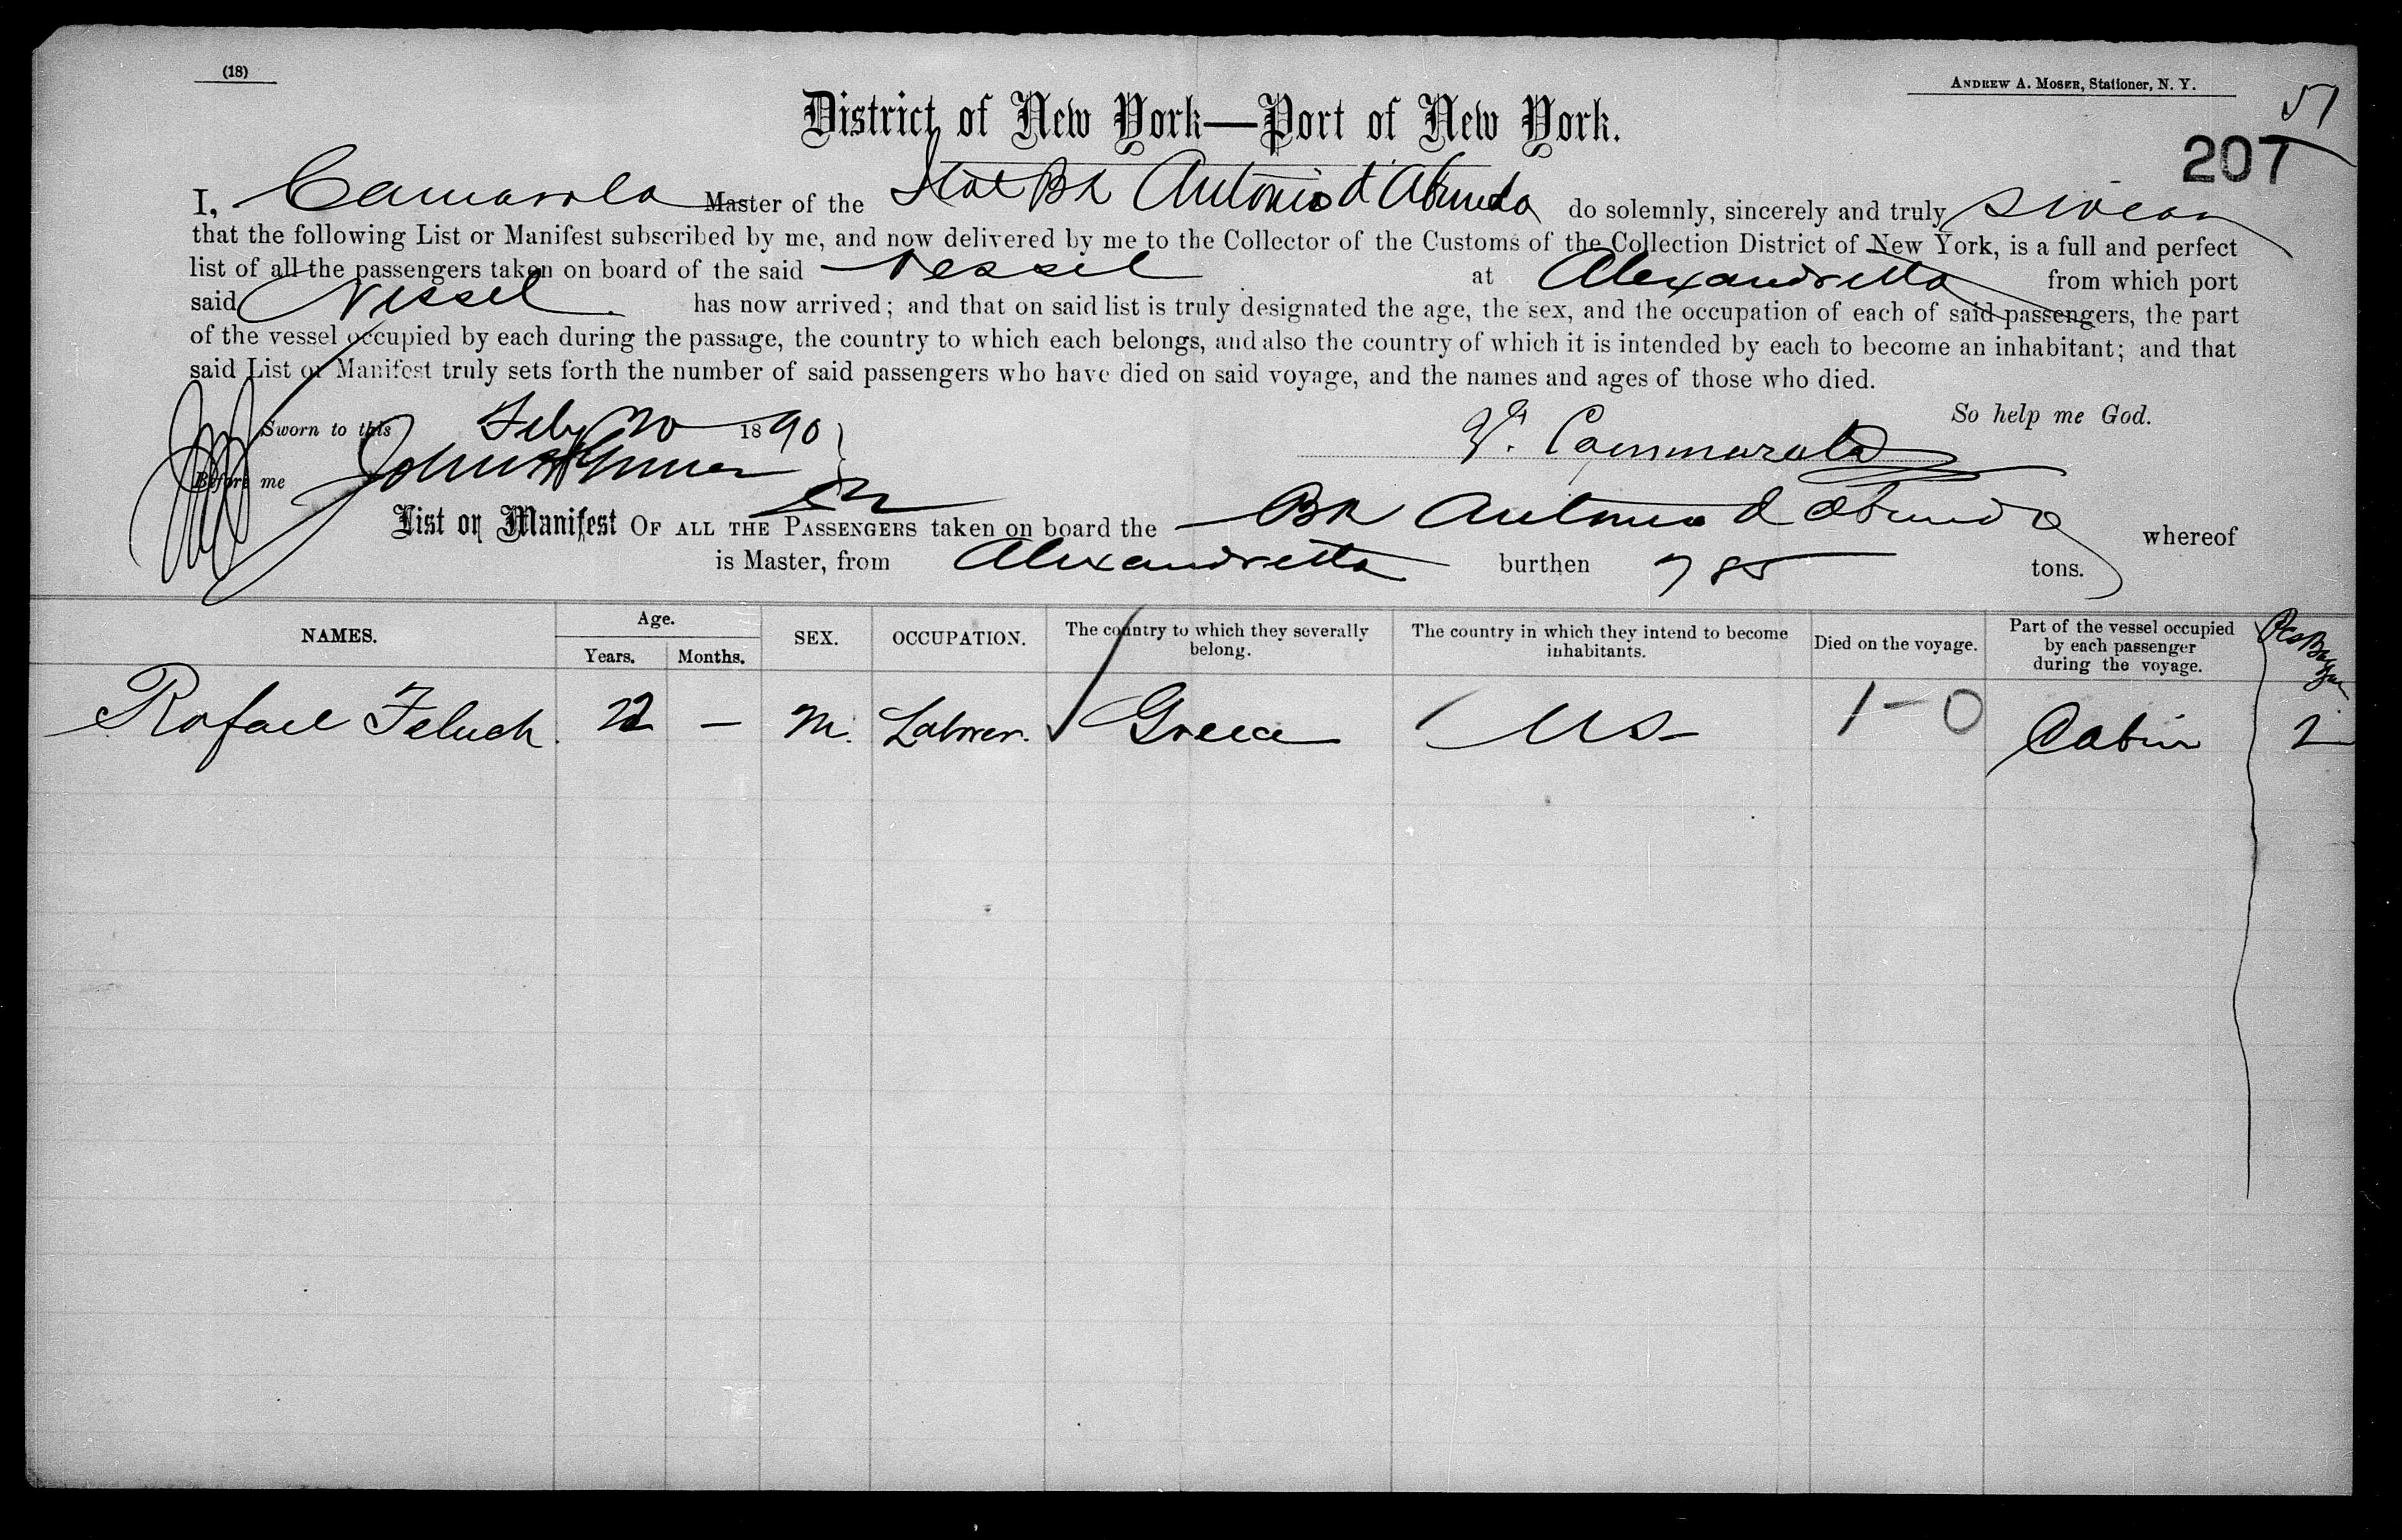 (18)
ANDREW A. MOSER, Stationer, N. Y.
51
District of New York—Port of New York.
207
I, Camarola Master of the Ital Bk Antonio d Abundo do solemnly, sincerely and truly swear
that the following List or Manifest subscribed by me, and now delivered by me to the Collector of the Customs of the Collection District of New York, is a full and perfect
list of all the passengers taken on board of the said Vessel at Alexandretta from which port
said Vessel has now arrived; and that on said list is truly designated the age, the sex, and the occupation of each of said passengers, the part
of the vessel occupied by each during the passage, the country to which each belongs, and also the country of which it is intended by each to become an inhabitant; and that
said List or Manifest truly sets forth the number of said passengers who have died on said voyage, and the names and ages of those who died.
So help me God.
Sworn to this Feby 20 1890
V. Cammarota
Before me John
List or Manifest OF ALL THE PASSENGERS taken on board the Bk Antonio d Abundo whereof
is Master, from Alexandretta burthen 785 tons.
NAMES. Age. Years. Months. SEX. OCCUPATION. The country to which they severally belong. The country in which they intend to become inhabitants. Died on the voyage. Part of the vessel occupied by each passenger during the voyage.
Rafael Feluch 22 — M. Laborer. Greece US 1-0 Cabin 2